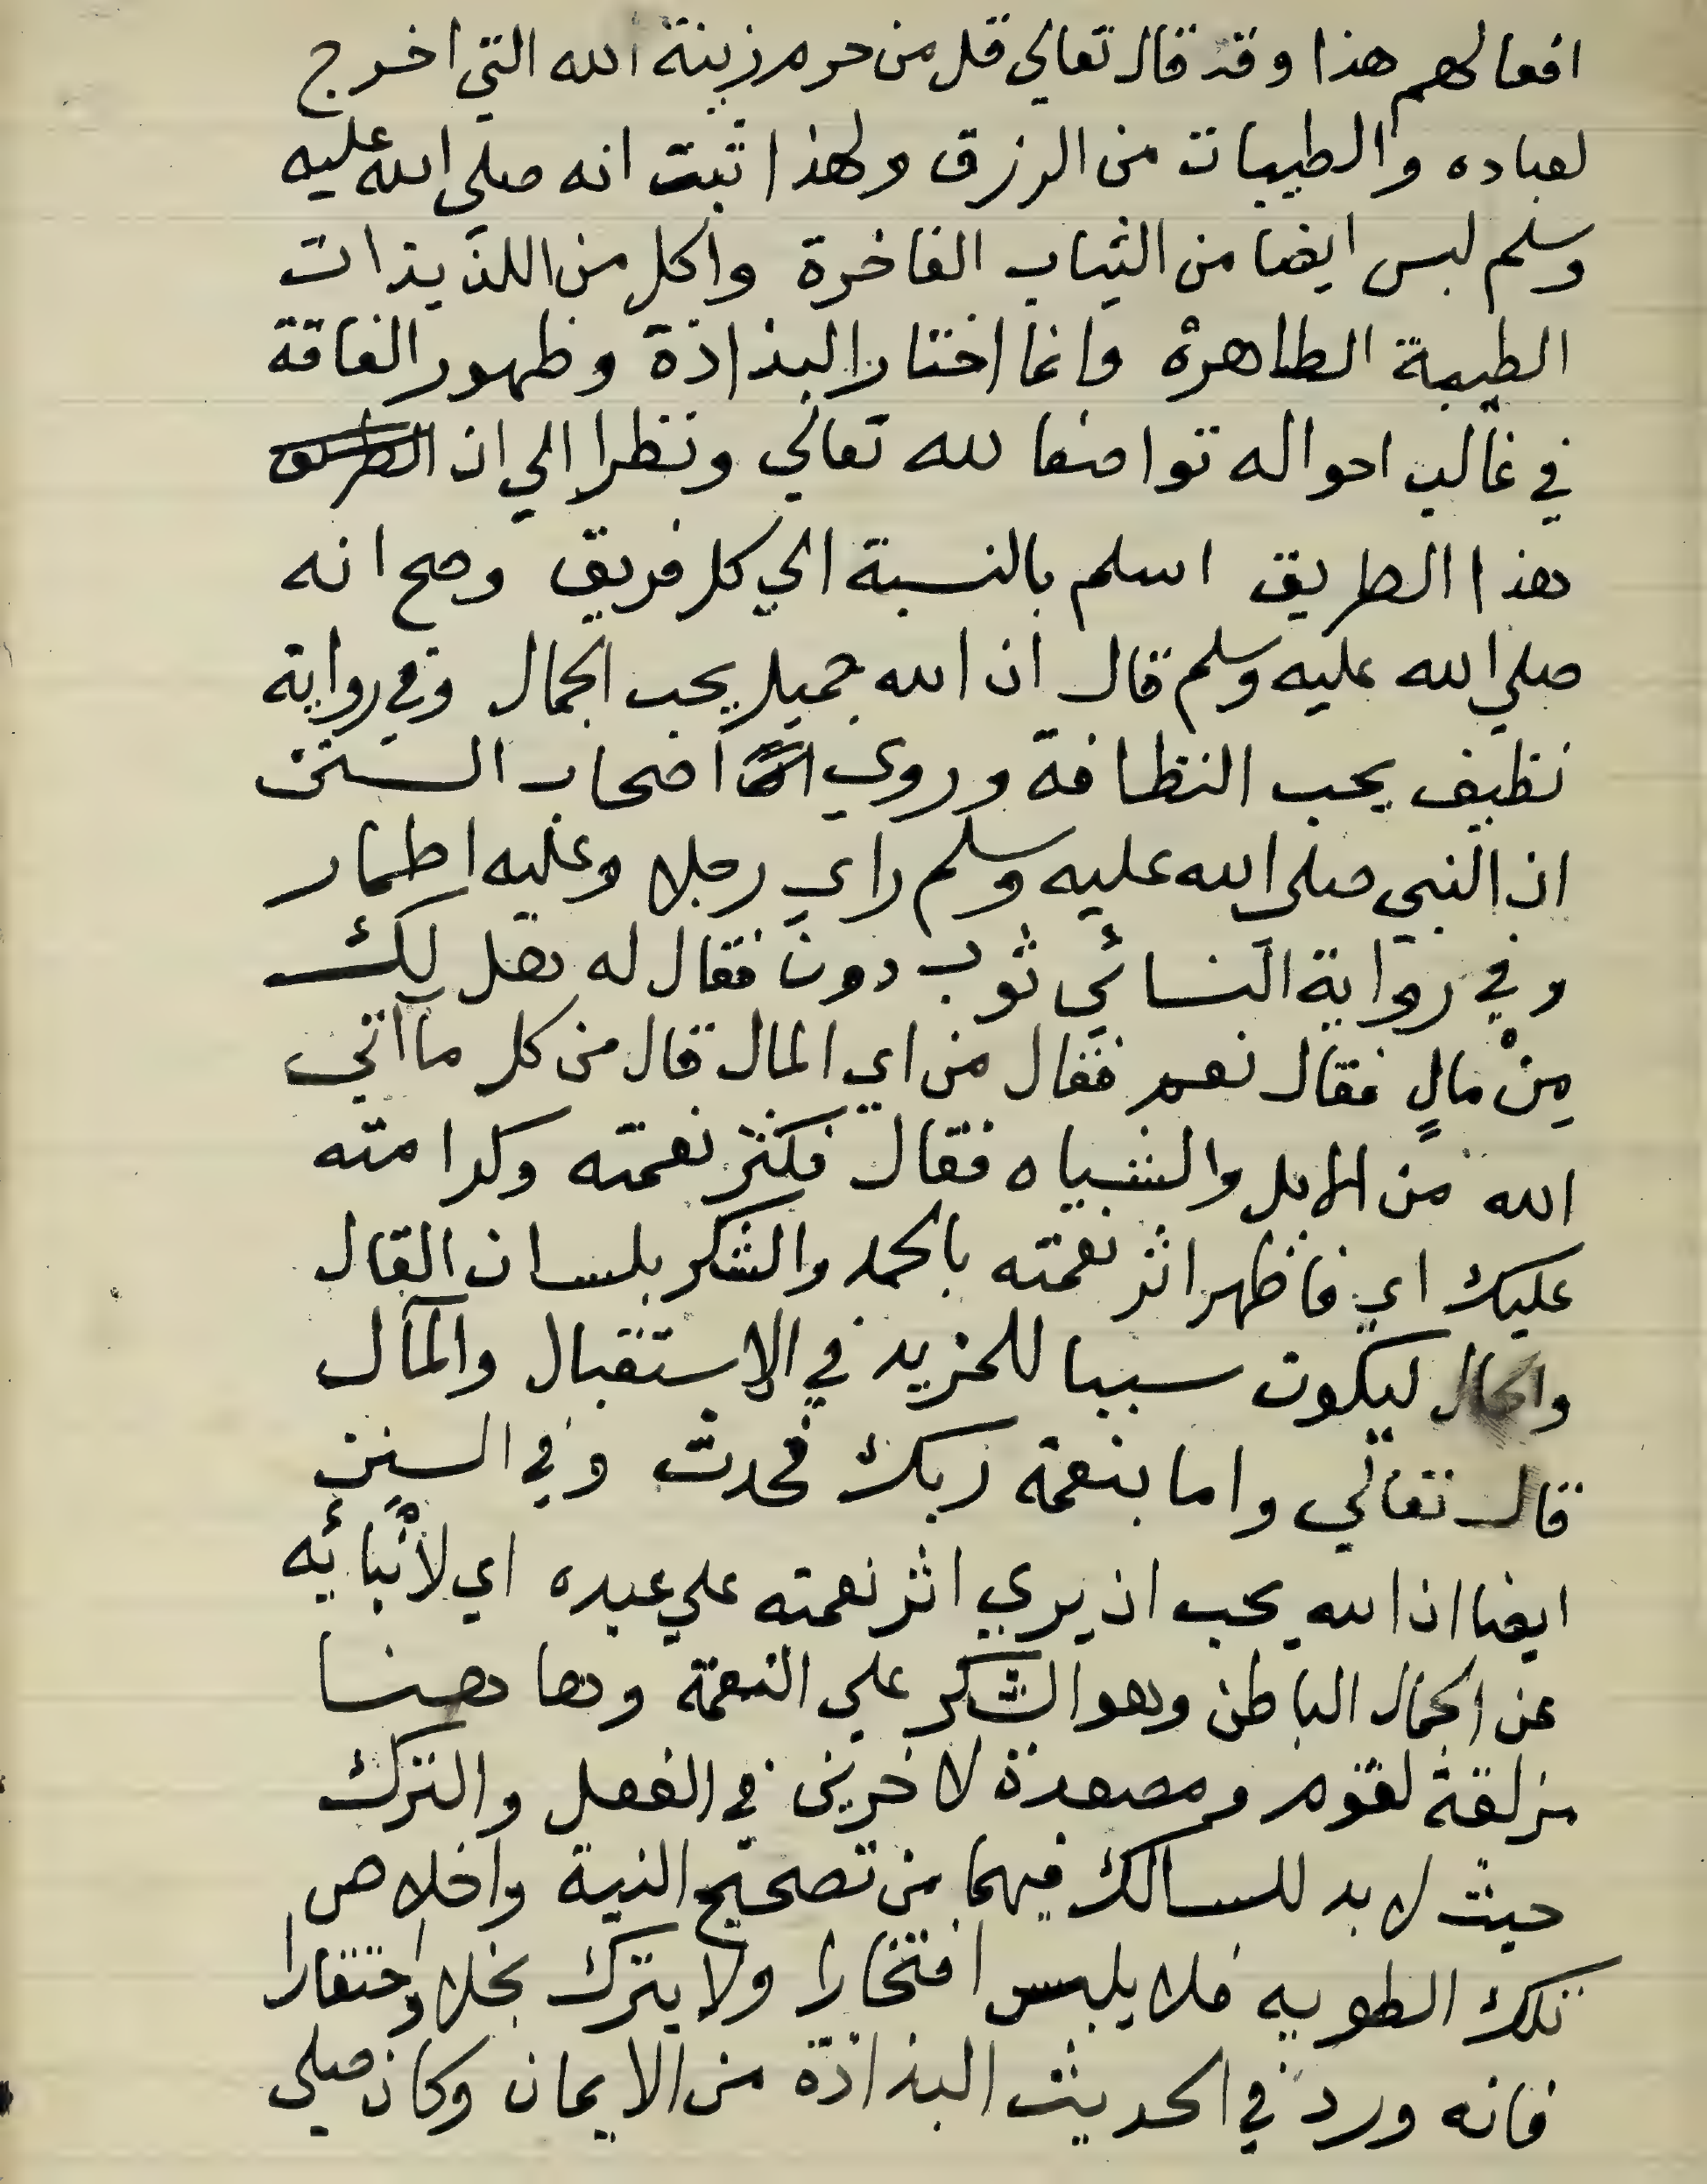 افعالهم هذا وقد قال تعالى قل من حرم زينة الله التي اخرج
لعباده والطيبات من الرزق ولهذا ثبت انه صلى الله عليه
وسلم لبس ايضا من الثياب الفاخرة واكل من اللذيذات
الطيبة الطاهرة وانما اختار البذاذة وظهور الفاقة
في غالب احواله تواضعا لله تعالي ونظرا الي ان الطريق
هذا الطريق اسلم بالنسبة الي كل فريق وصح انه
صلي الله عليه وسلم قال ان الله جميل يحب الجمال وفي رواية
نظيف يحب النظافة وروي اصحاب السنن
ان النبي صلى الله عليه وسلم راي رجلا وعليه اطمار
وفي رواية النسائي ثوب دون فقال له هل لك
مِنْ مالٍ فقال نعم فقال من اي المال قال من كل ما آتى
الله من الابل والشياه فقال فكثر نعمته وكرامته
عليك اي فاظهر اثر نعمته بالحمد والشكر بلسان القال
والحال ليكون سببا للمزيد في الاستقبال والمآل
قال تعالي واما بنعمة ربك فحدث وفي السنن
ايضا ان الله يحب ان يري اثر نعمته علي عبده اي لأنْبائه
عن الجمال الباطن وهو الشكر علي النعمة وها هنا
مزلقة لقوم ومصعدة لاخرين في الفعل والترك
حيث لا بد للسالك فيهما من تصحيح النية واخلاص
تلك الطويه فلا يلبس افتخارا ولا يترك بخلا واحتقارا
فانه ورد في الحديث البذاذة من الايمان وكان صلي